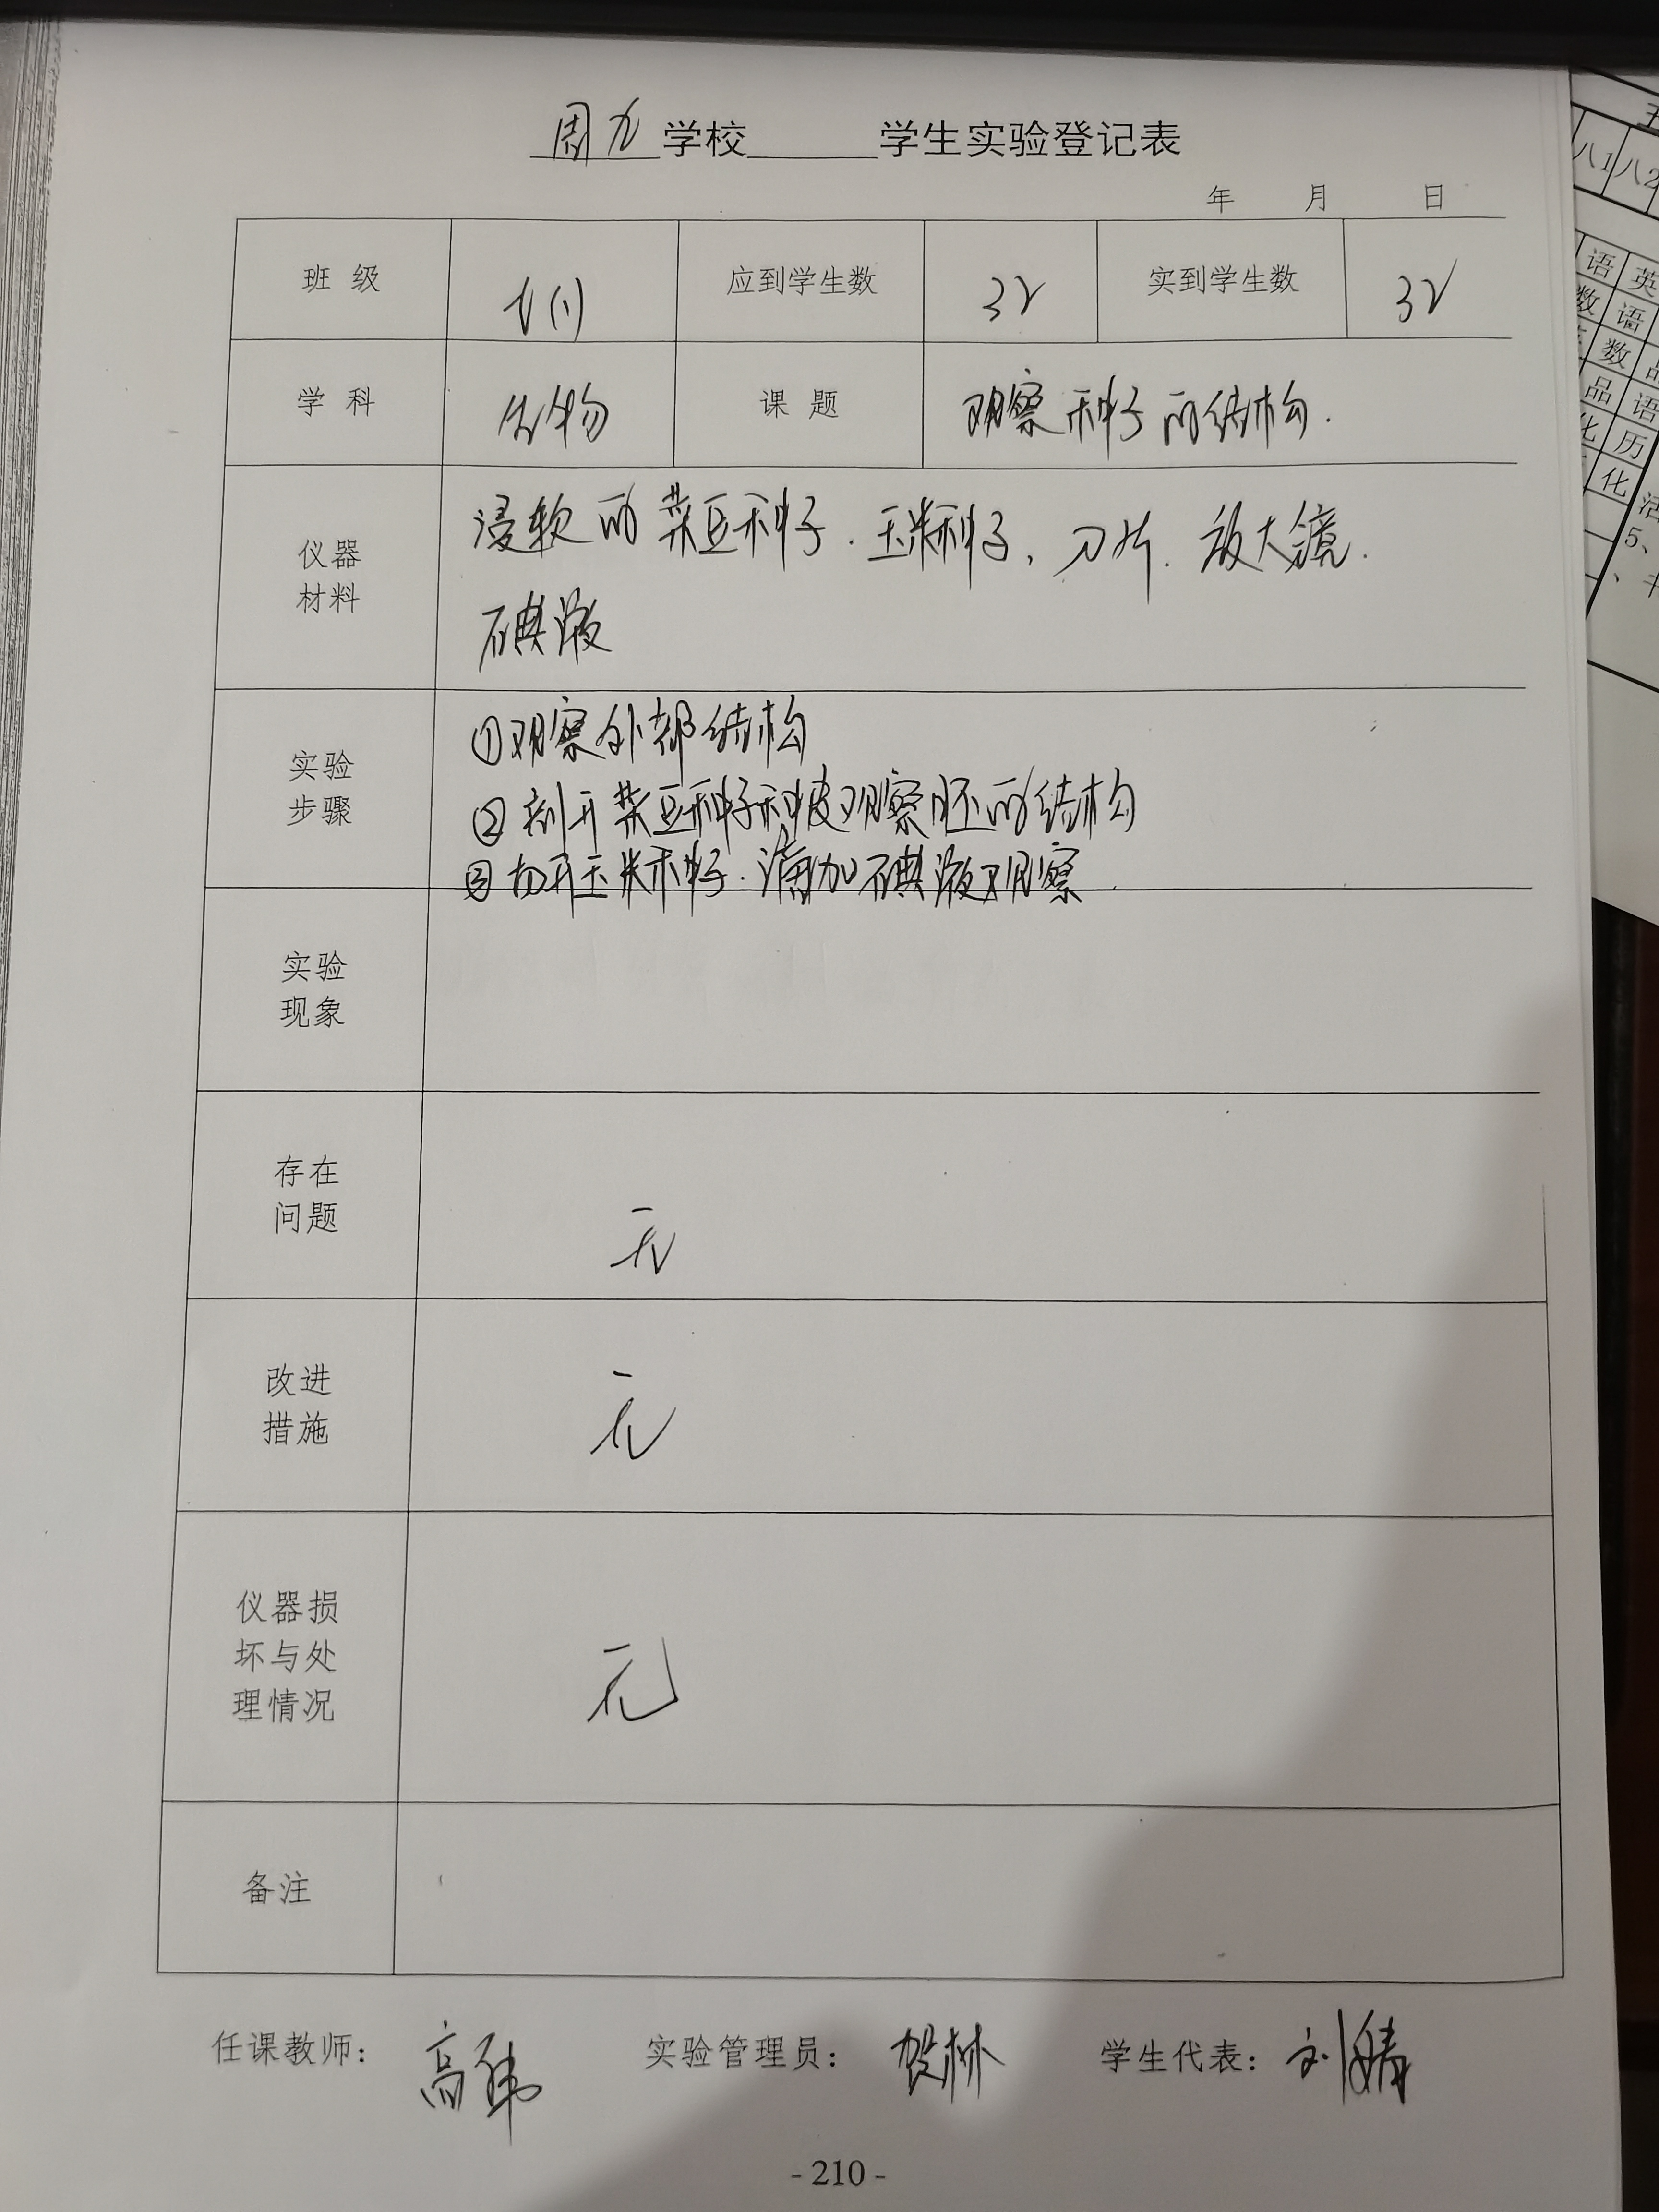 周九学校 学生实验登记表
年 月 日
班 级 七(1) 应到学生数 32 实到学生数 32
学 科 生物 课 题 观察种子的结构.
仪器
材料
浸软的菜豆种子.玉米种子、刀片.放大镜.
碘液
实验
步骤
①观察外部结构
②剥开菜豆种子种皮观察胚的结构
③切开玉米种子.滴加碘液观察.
实验
现象
存在
问题
无
改进
措施
无
仪器损
坏与处
理情况
无
备注
任课教师: 高 实验管理员: 贺林 学生代表: 刘婧
- 210 -
八1 八2
语 英
数 语
数 品
品 语
化 历
化
活
5、